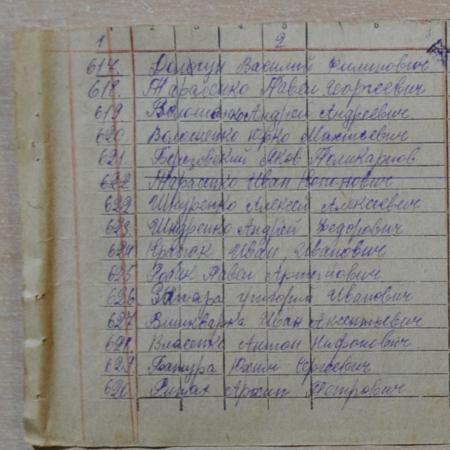 1 2
617. Долгун Василий Дмитрович
618. Тарасенко Павел Георгиевич
619 Волошенко Андрей Андреевич
620 Волошенко Юрко Моисеевич
621. Березовский Яков Поликарпов
622 Тарасенко Иван Кононович
622 Шкуренко Алексей Алексеевич
623. Шкуренко Андрей Федорович
624 Юрасюк Иван Иванович
625 Павел Артемович
626 Запара Григорий Иванович
627 Вишкварка Иван Аксентьевич
628 Власенко Антон Нифонович
629 Бакура Юхим Сергеевич
630 Архип Петрович